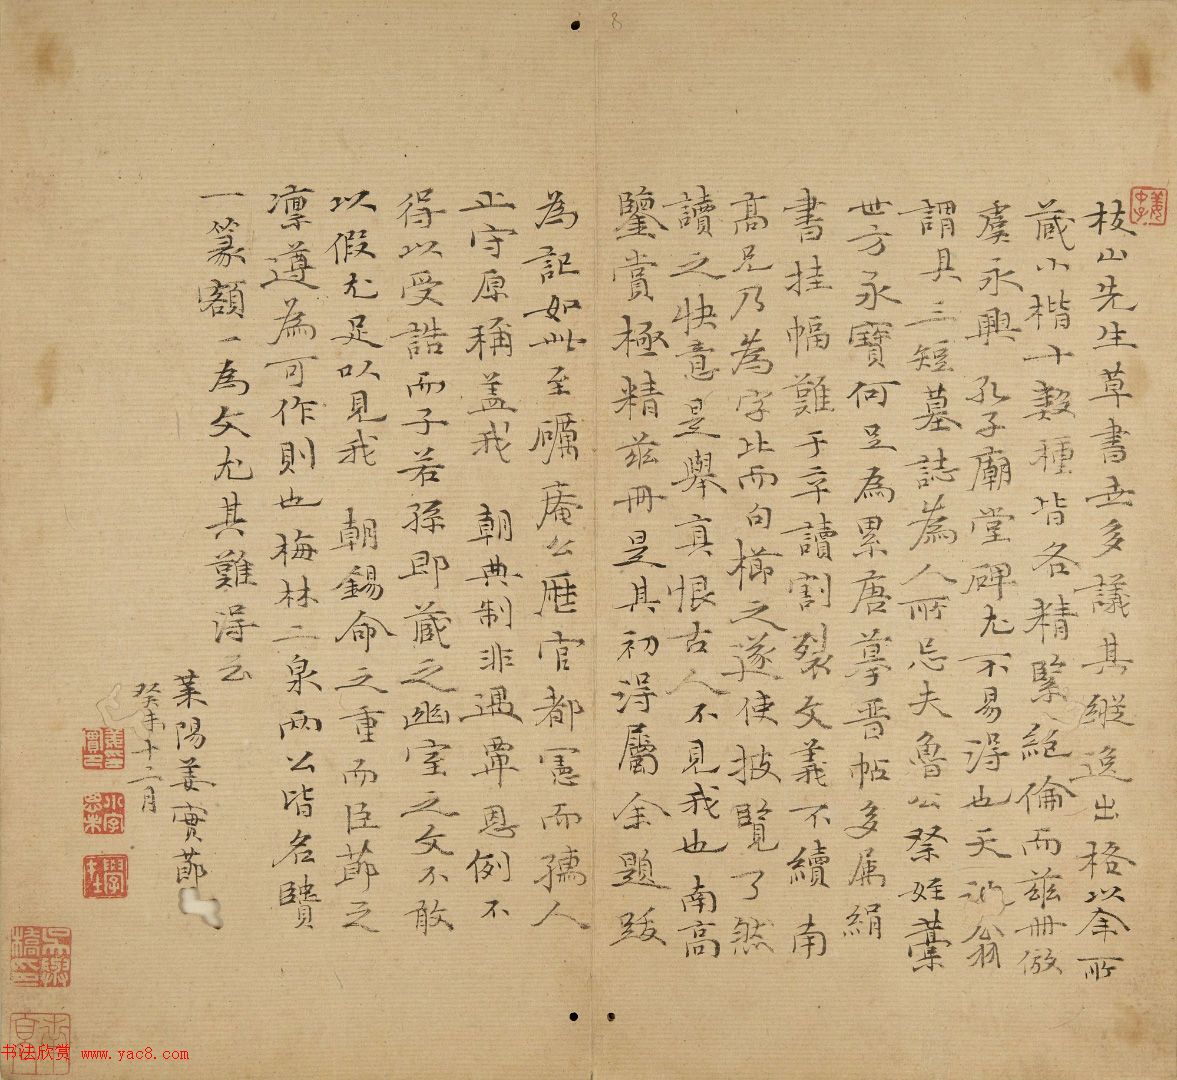 枝山先生草書世多議其縱逸出格以余所
藏小楷十數種皆各精緊絕倫而茲冊倣
虞永興孔子廟堂碑尤不易得也天 翁
謂具三短墓誌為人所忌夫魯公祭姪藁
世方永寶何足為累唐摹晉帖多属絹
書挂幅難于卒讀割裂文義不續南
高兄乃為字比而句櫛之遂使披覽了然
讀之快意是舉真恨古人不見我也南高
鑒賞極精茲冊是其初得屬余題跋
為記如此至礪庵公歷官都憲而孺人
止守原稱蓋我 朝典制非遇覃恩例不
得以受誥而子若孫即藏之幽室之文不敢
以假尤足以見我 朝錫命之重而臣節之
凜遵為可作則也梅林二泉兩公皆名賢
一篆額一為文尤其難得云
萊陽姜實節
癸未十二月
姜實節印
小字思未
學在
書法欣赏 www.yac8.com